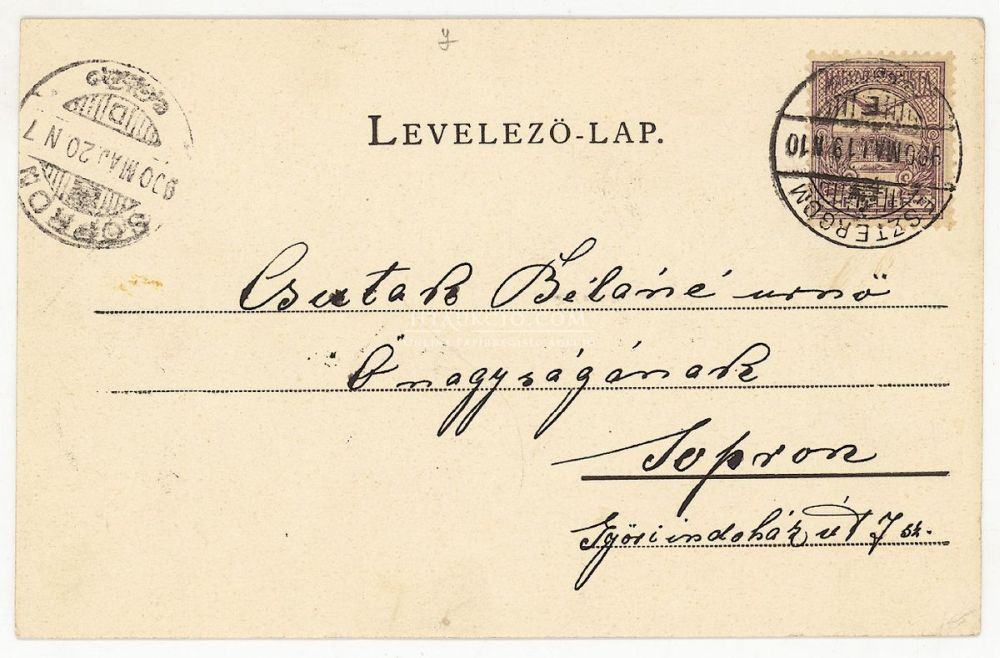 LEVELEZÖ-LAP.
MAGYAR POSTA
ESZTERGOM
900 MAJ. 19 N 10
SOPRON
900 MAJ. 20 N 7
Csutak Béláné urnö
Ő nagyságának
Sopron
Györi indoház út 7 sz.